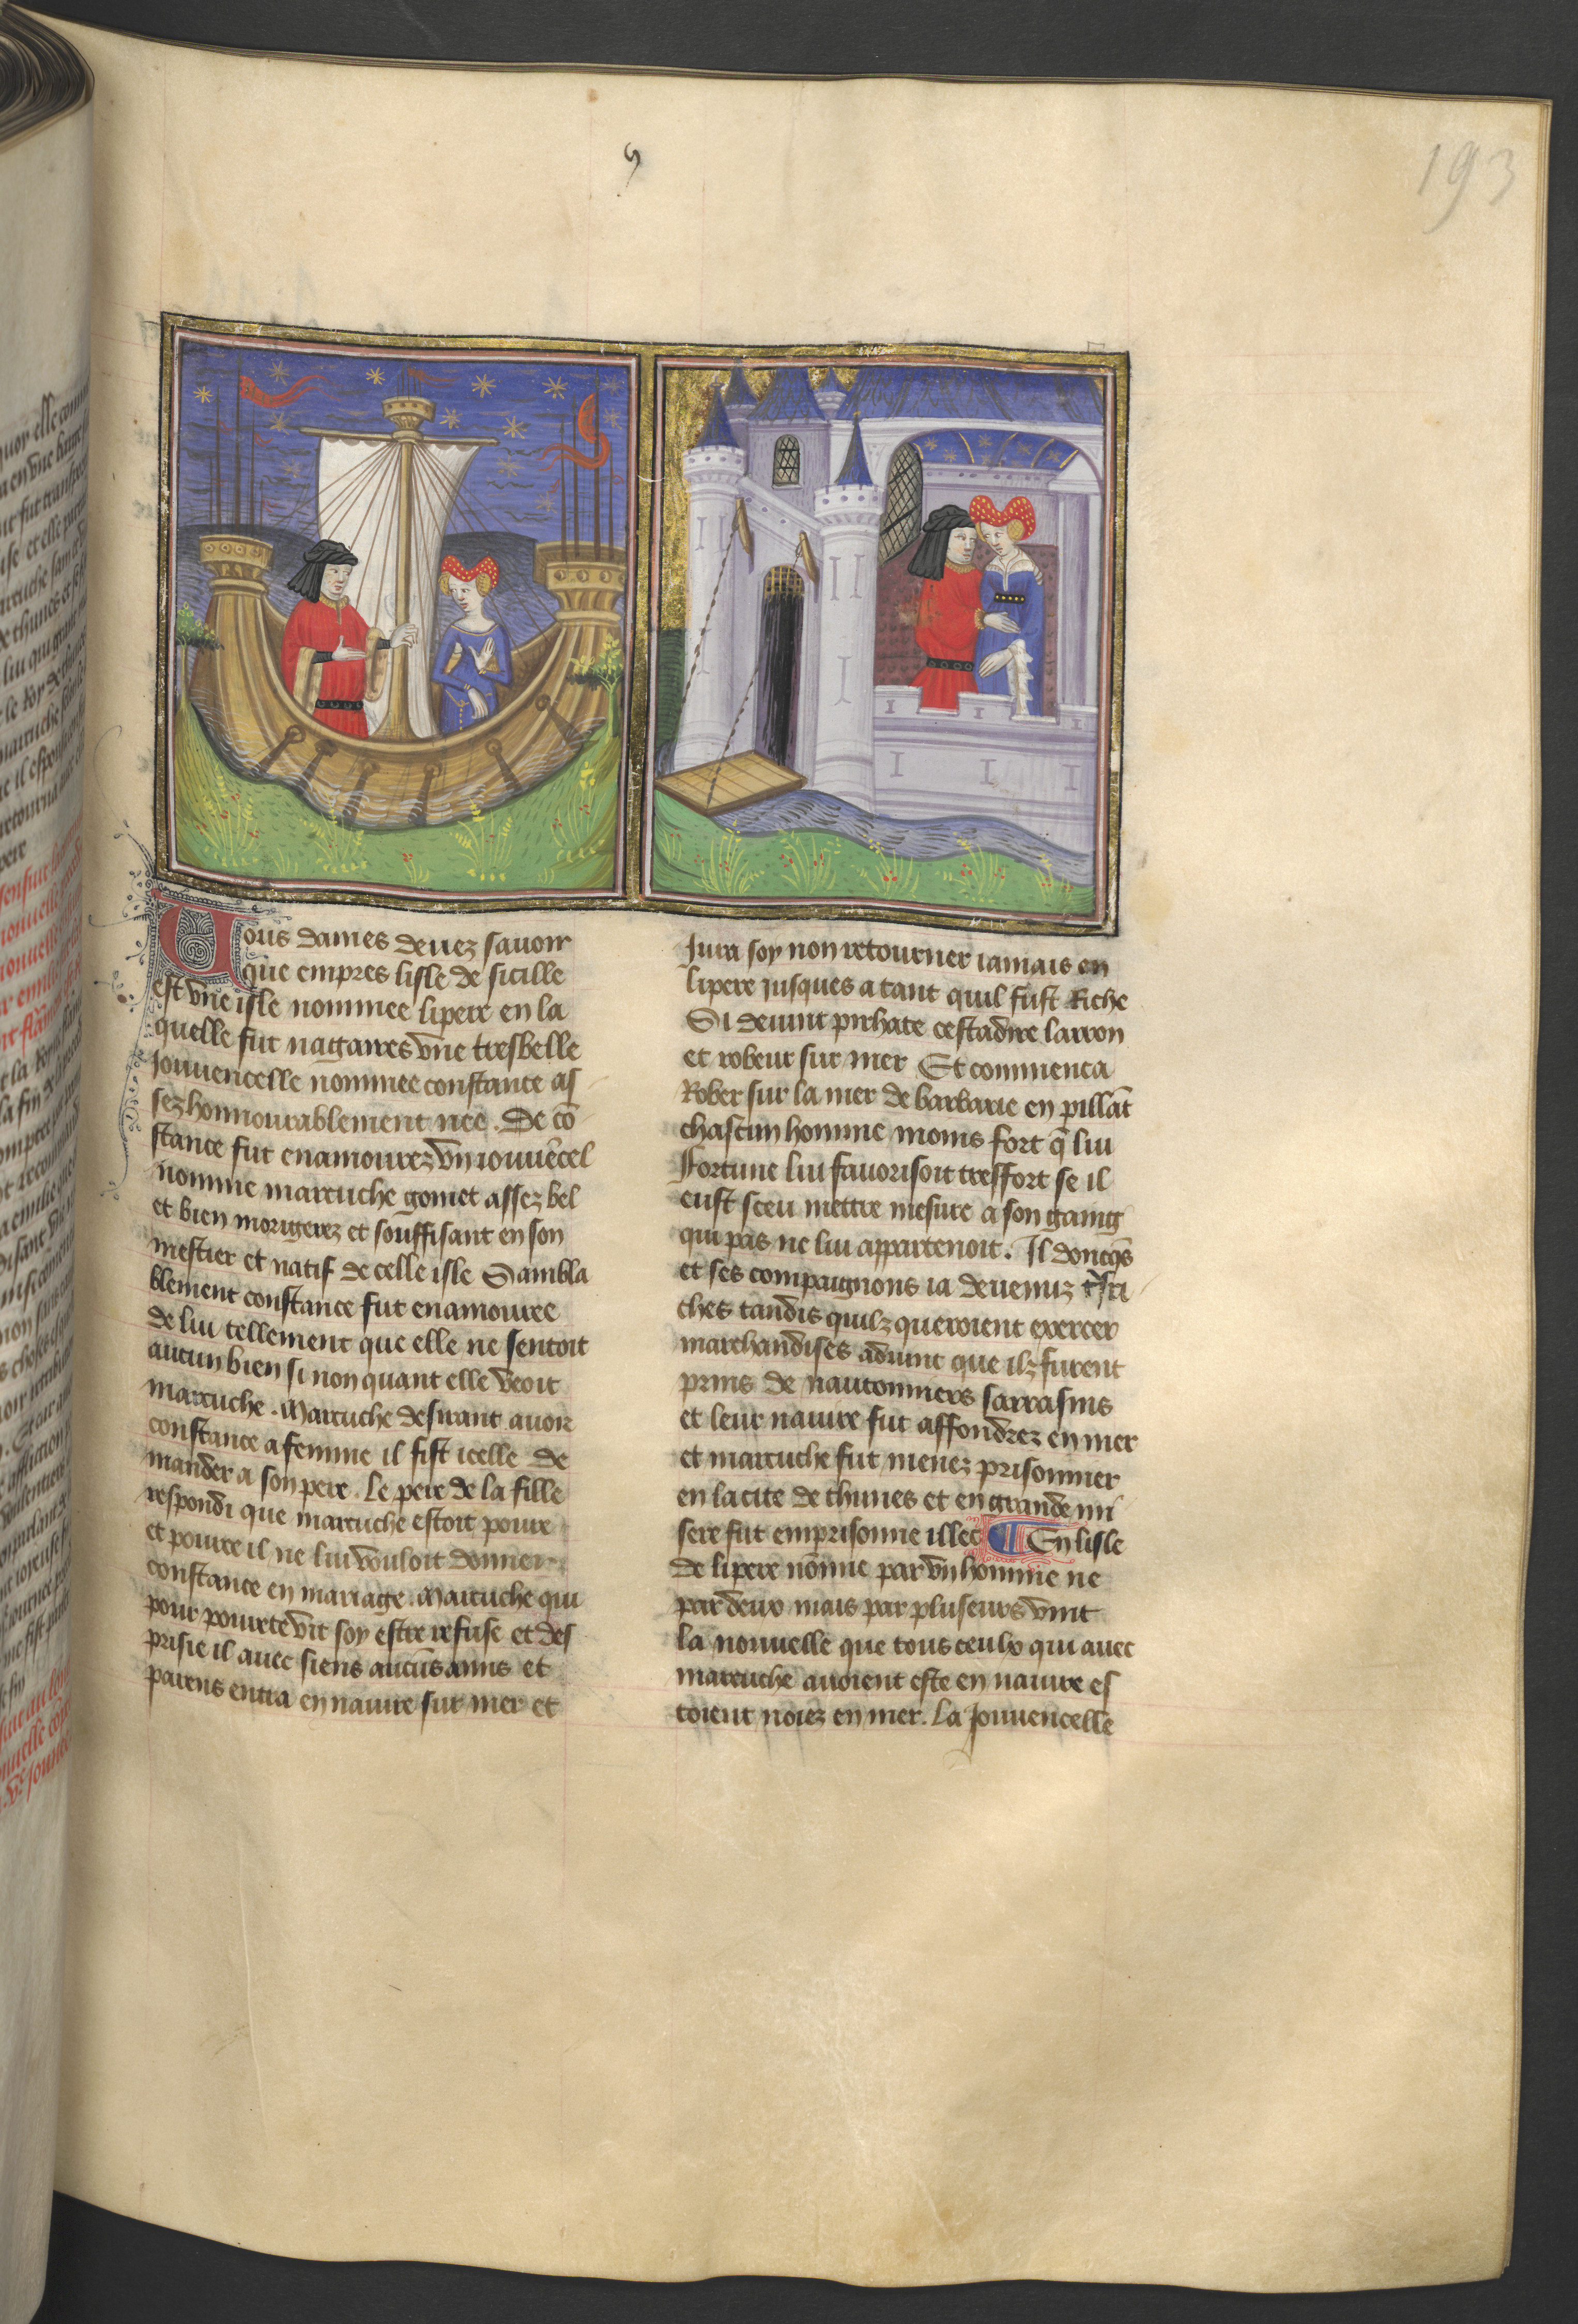 193
Vous dames devez savoir
que empres lisle de sicille
est vne isle nommee lipere en la
quelle fut nagaires vne tresbelle
Jouvencelle nommee constance as
sez honnourablement nee. De cō
stance fut enamourez vn iouvēcel
nomme martuche gomet assez bel
et bien morigerez et souffisant en son
mestier et natif de celle isle Sambla
blement constance fut enamouree
de lui tellement que elle ne sentoit
aucun bien si non quant elle veoit
martuche. Martuche desirant avoir
constance a femme il fist icelle de
mander a son pere. Le pere de la fille
respondi que martuche estoit povre
et povre il ne lui vouloit donner
constance en mariage. Martuche qui
pour povrete vit soy estre refuse et des
prisie il avec siens aucūs amis et
parens entra en navire sur mer et
Jura soy non retourner iamais en
lipere jusques a tant quil fust Riche
Si devint pirhate cestadire larron
et robeur sur mer Et commenca
Rober sur la mer de barbarie en pillāt
chascun homme moins fort q̄ lui
Fortune lui favorisoit tresffort se il
eust sceu mettre mesure a son gaing
qui pas ne lui appartenoit. Il doncq̄s
et ses compaignons ia devenuz tr̄sri
ches tandis quilz queroient exercer
marchandises advint que ilz furent
prins de nautonniers sarrasins
et leur navire fut affondrez en mer
et martuche fut menez prisonnier
en la cite de thunes et en grande mi
sere fut emprisonne illec En lisle
de lipere nōmie par vn homme ne
par deux mais par pluseurs vint
la nouvelle que tous ceulx qui avec
martuche avoient este en navire es
toient noiez en mer. La Jouvencelle